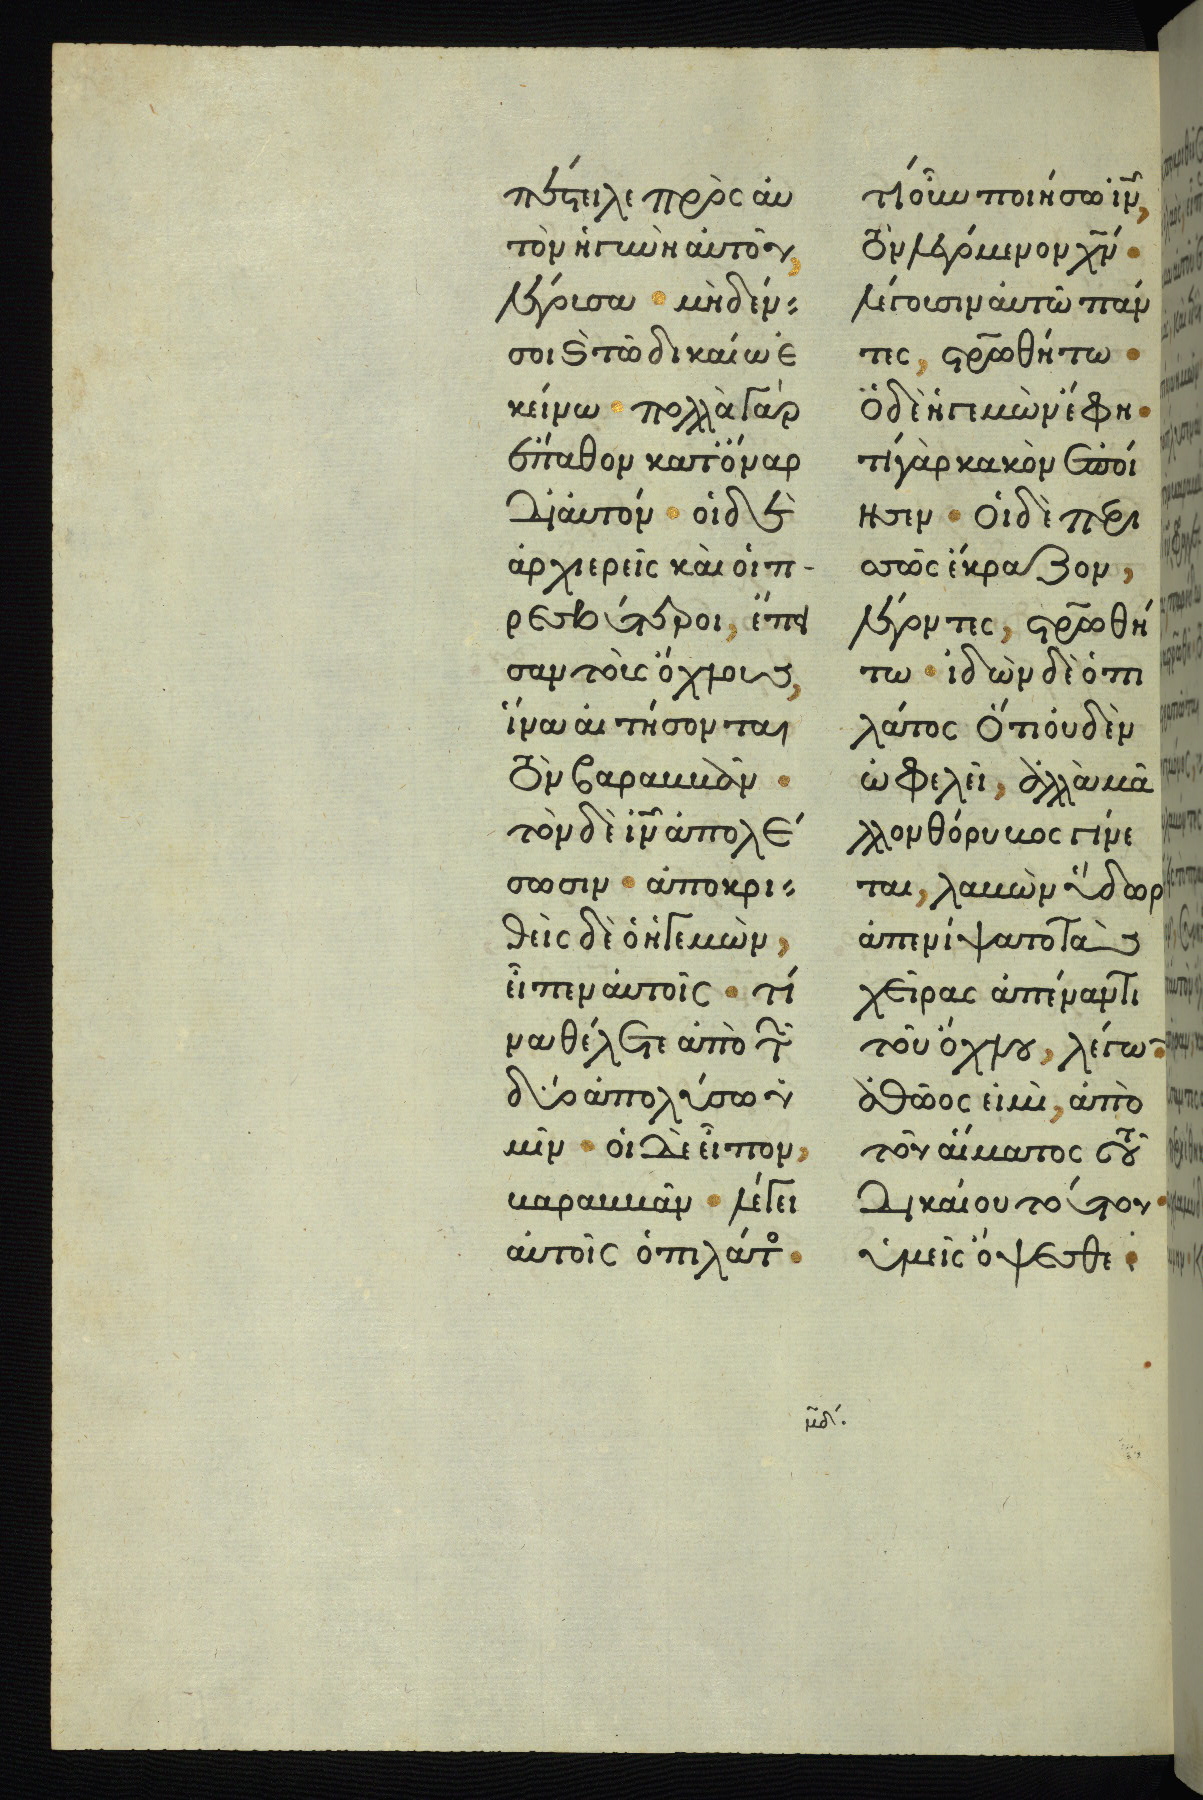 πέστειλε πρὸς ἀυ
τὸν ἡ γυνὴ ἀυτοῦ,
λέγουσα · μηδέν
σοι ϗ τῶ δικαίω ἐ
κείνω · πολλὰ γὰρ
ἔπαθον κατ ὄναρ
δι ἀυτόν · οἱ δὲ
ἀρχιερεῖς καὶ οἱ π-
ρεσβύτεροι, ἔπει
σαν τοὺς ὄχλους,
ἵνα ἀιτήσονται
τὸν βαραββᾶν ·
τὸν δὲ ιν̅ ἀπολέ
σωσιν · ἀποκρι
θεὶς δὲ ὁ ἡγεμὼν,
εἶπεν ἀυτοῖς · τί
να θέλετε ἀπὸ τῶν
δύο ἀπολύσω ὑ
μῖν · οἱ δὲ εἶπον,
βαραββᾶν · λέγει
ἀυτοῖς ὁ πιλάτος ·
τί οὖν ποιήσω ιν̅,
τὸν λεγόμενον χν̅ ·
λέγουσιν ἀυτῶ πάν
τες, στρ̅ωθήτω ·
Ὁ δὲ ἡγεμὼν ἔφη ·
τί γὰρ κακὸν ἐποί
ησεν · Οἱ δὲ περι
σσῶς ἔκραζον,
λέγοντες, στρ̅ωθή
τω · ἰδὼν δὲ ὁ πι
λάτος Ὅτι ὀυδὲν
ὠφελεῖ, ἀλλὰ μᾶ
λλον θόρυβος γίνε
ται, λαβὼν ὕδωρ
ἀπενίψατο τὰς
χεῖρας ἀπέναντι
τοῦ ὄχλου, λέγων ·
ἀθῶος εἰμὶ, ἀπὸ
τοῦ αἵματος τοῦ
Δικάιου τούτου ·
ὑμεῖς ὄψεσθε ·
μδ.